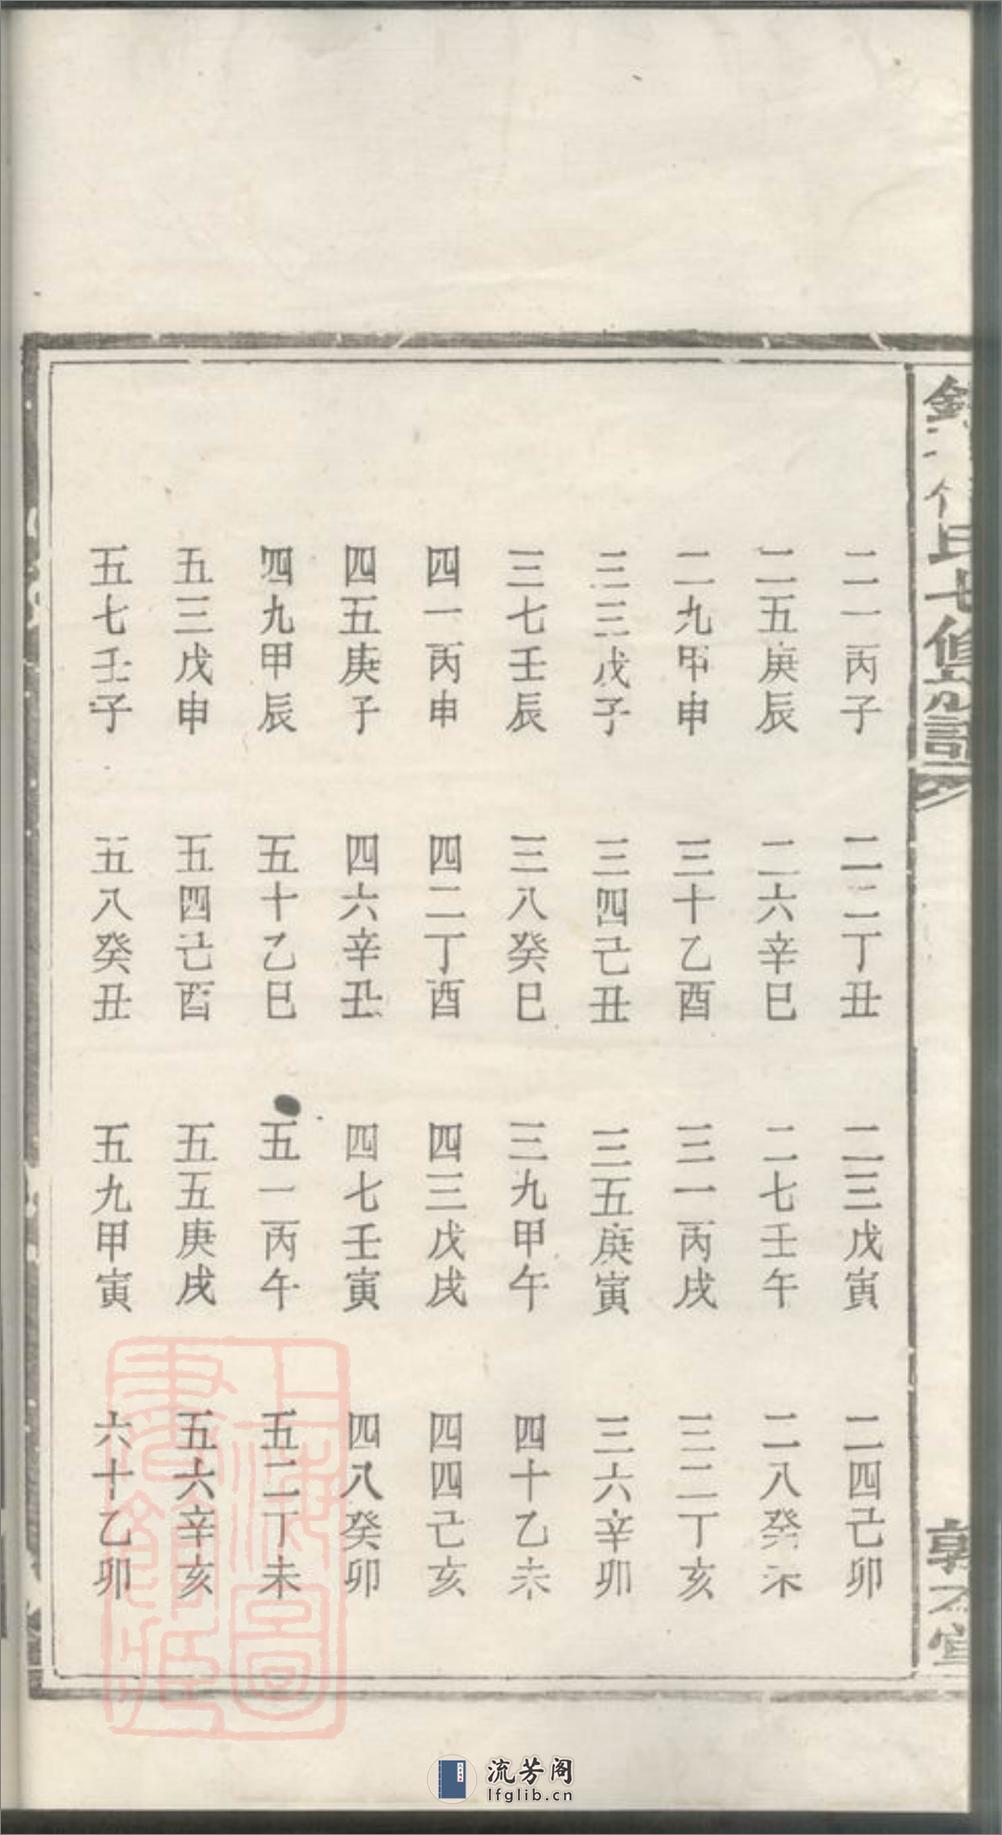 氏七修宗譜
二一丙子 二二丁丑 二三戊寅 二四己卯
二五庚辰 二六辛巳 二七壬午 二八癸未
二九甲申 三十乙酉 三一丙戌 三二丁亥
三三戊子 三四己丑 三五庚寅 三六辛卯
三七壬辰 三八癸巳 三九甲午 四十乙未
四一丙申 四二丁酉 四三戊戌 四四己亥
四五庚子 四六辛丑 四七壬寅 四八癸卯
四九甲辰 五十乙巳 五一丙午 五二丁未
五三戊申 五四己酉 五五庚戌 五六辛亥
五七壬子 五八癸丑 五九甲寅 六十乙卯
上海圖
書館藏
流芳阁
lfglib.cn